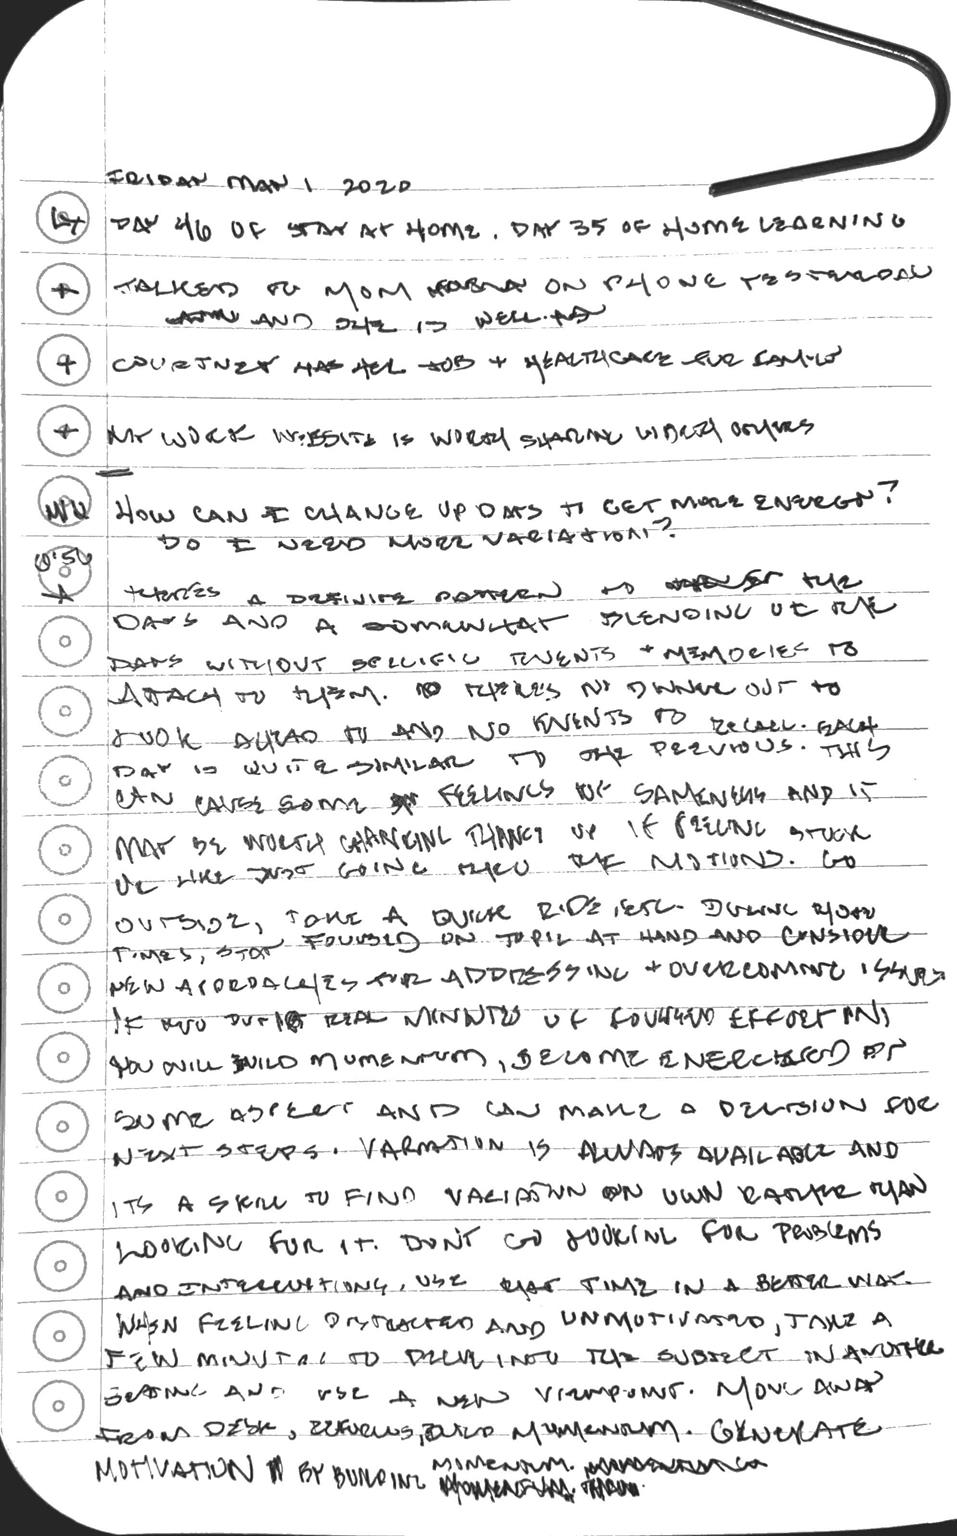 FRIDAY MAY 1 2020
DAY 46 OF STAY AT HOME. DAY 35 OF HOME LEARNING
+ TALKED TO MOM ON PHONE YESTERDAY
AND SHE IS WELL.
+ COURTNEY HAS HER JOB + HEALTHCARE FOR FAMILY
+ MY WORK WEBSITE IS WORTH SHARING WITH OTHERS
HOW CAN I CHANGE UP DAYS TO GET MORE ENERGY?
DO I NEED MORE VARIATION?
THERES A DEFINITE PATTERN TO THE
DAYS AND A SOMEWHAT BLENDING OF THE
DAYS WITHOUT SPECIFIC EVENTS + MEMORIES TO
ATTACH TO THEM. THERES NO DINNER OUT TO
LOOK AHEAD TO AND NO EVENTS TO RECALL. EACH
DAY IS QUITE SIMILAR TO THE PREVIOUS. THIS
CAN CAUSE SOME FEELINGS OF SAMENESS AND IT
MAY BE WORTH CHANGING THINGS UP IF FEELING STUCK
OR LIKE JUST GOING THRU THE MOTIONS. GO
OUTSIDE, TAKE A QUICK RIDE, ETC. DURING
TIMES, STAY FOCUSED ON TOPIC AT HAND AND CONSIDER
NEW APPROACHES FOR ADDRESSING + OVERCOMING ISSUES
IF YOU PUT REAL MINUTES OF FOCUSED EFFORT IN,
YOU WILL BUILD MOMENTUM, BECOME ENERGIZED BY
SOME ASPECT AND CAN MAKE A DECISION FOR
NEXT STEPS. VARIATION IS ALWAYS AVAILABLE AND
ITS A SKILL TO FIND VARIATION ON OWN RATHER THAN
LOOKING FOR IT. DON'T GO LOOKING FOR PROBLEMS
AND INTERRUPTIONS, USE THAT TIME IN A BETTER WAY.
WHEN FEELING DISTRACTED AND UNMOTIVATED, TAKE A
FEW MINUTES TO DELVE INTO THE SUBJECT IN ANOTHER
SETTING AND USE A NEW VIEWPOINT. MOVE AWAY
FROM DESK, REFOCUS, BUILD MOMENTUM. GENERATE
MOTIVATION BY BUILDING MOMENTUM.